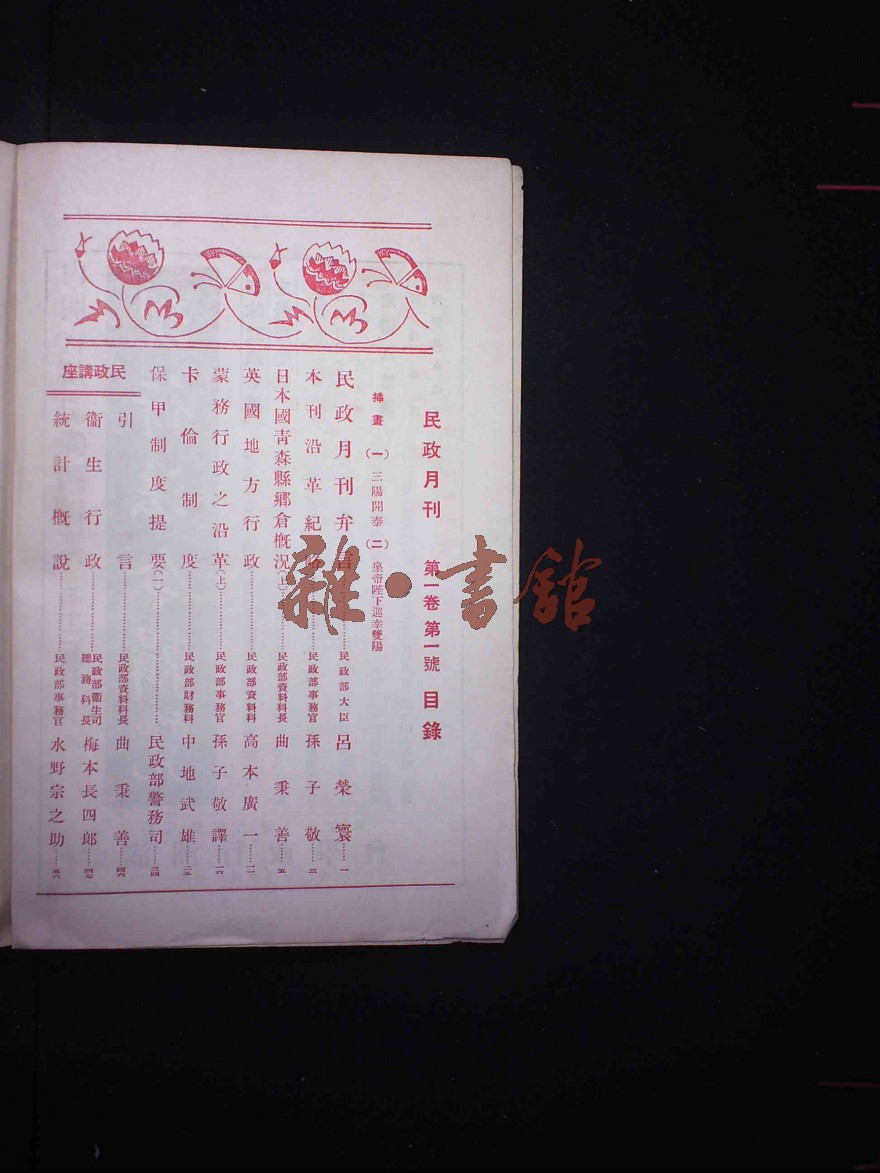 民政月刊 第一卷第一號 目錄
挿畫 (一) 三陽開泰 (二) 皇帝陛下巡幸雙陽
民政月刊弁言……民政部大臣 呂榮寰……一
本刊沿革紀略……民政部事務官 孫子敬……三
日本國靑森縣鄉倉槪況(上)……民政部資料科長 曲秉善……五
英國地方行政……民政部資料科 高本廣一……一一
蒙務行政之沿革(上)……民政部事務官 孫子敬譯……一六
卡倫制度……民政部財務科 中地武雄……二五
保甲制度提要(一)……民政部警務司……三四
民政講座
引言……民政部資料科長 曲秉善……四六
衞生行政……民政部衞生司總務科長 梅本長四郎……四七
統計槪說……民政部事務官 水野宗之助……五六
雜·書館